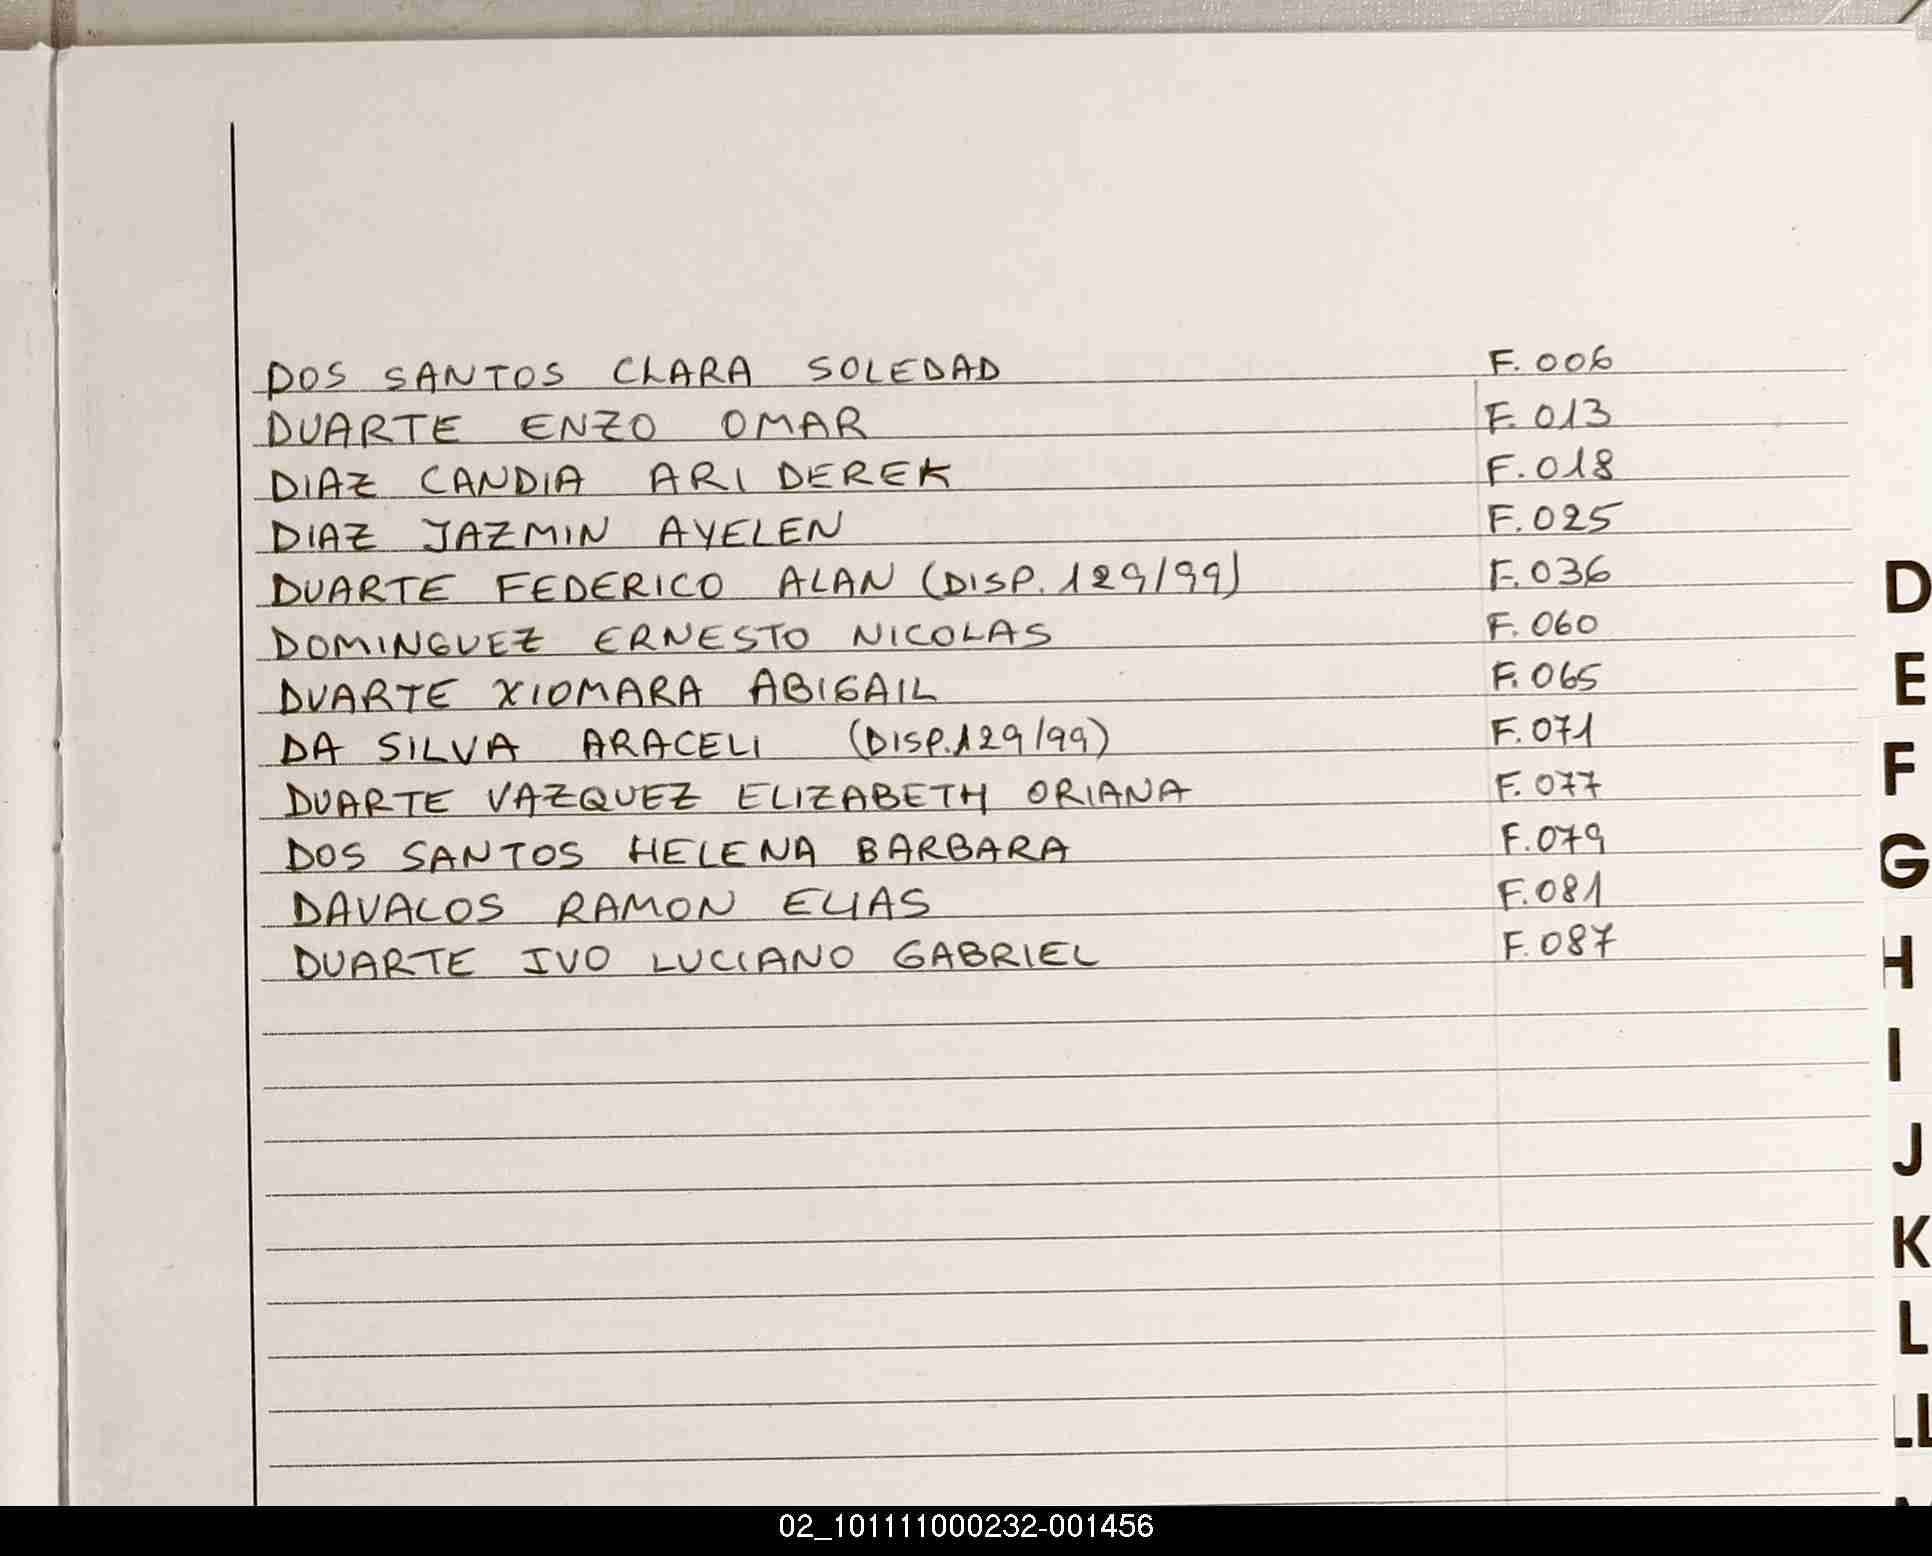 DOS SANTOS CLARA SOLEDAD F. 006
DUARTE ENZO OMAR F. 013
DIAZ CANDIA ARI DEREK F. 018
DIAZ JAZMIN AYELEN F. 025
DUARTE FEDERICO ALAN (DISP. 129/99) F. 036
DOMINGUEZ ERNESTO NICOLAS F. 060
DUARTE XIOMARA ABIGAIL F. 065
DA SILVA ARACELI (DISP. 129/99) F. 071
DUARTE VAZQUEZ ELIZABETH ORIANA F. 077
DOS SANTOS HELENA BARBARA F. 079
DAVALOS RAMON ELIAS F. 081
DUARTE IVO LUCIANO GABRIEL F. 087
D
E
F
G
H
I
J
K
L
LL
02_101111000232-001456